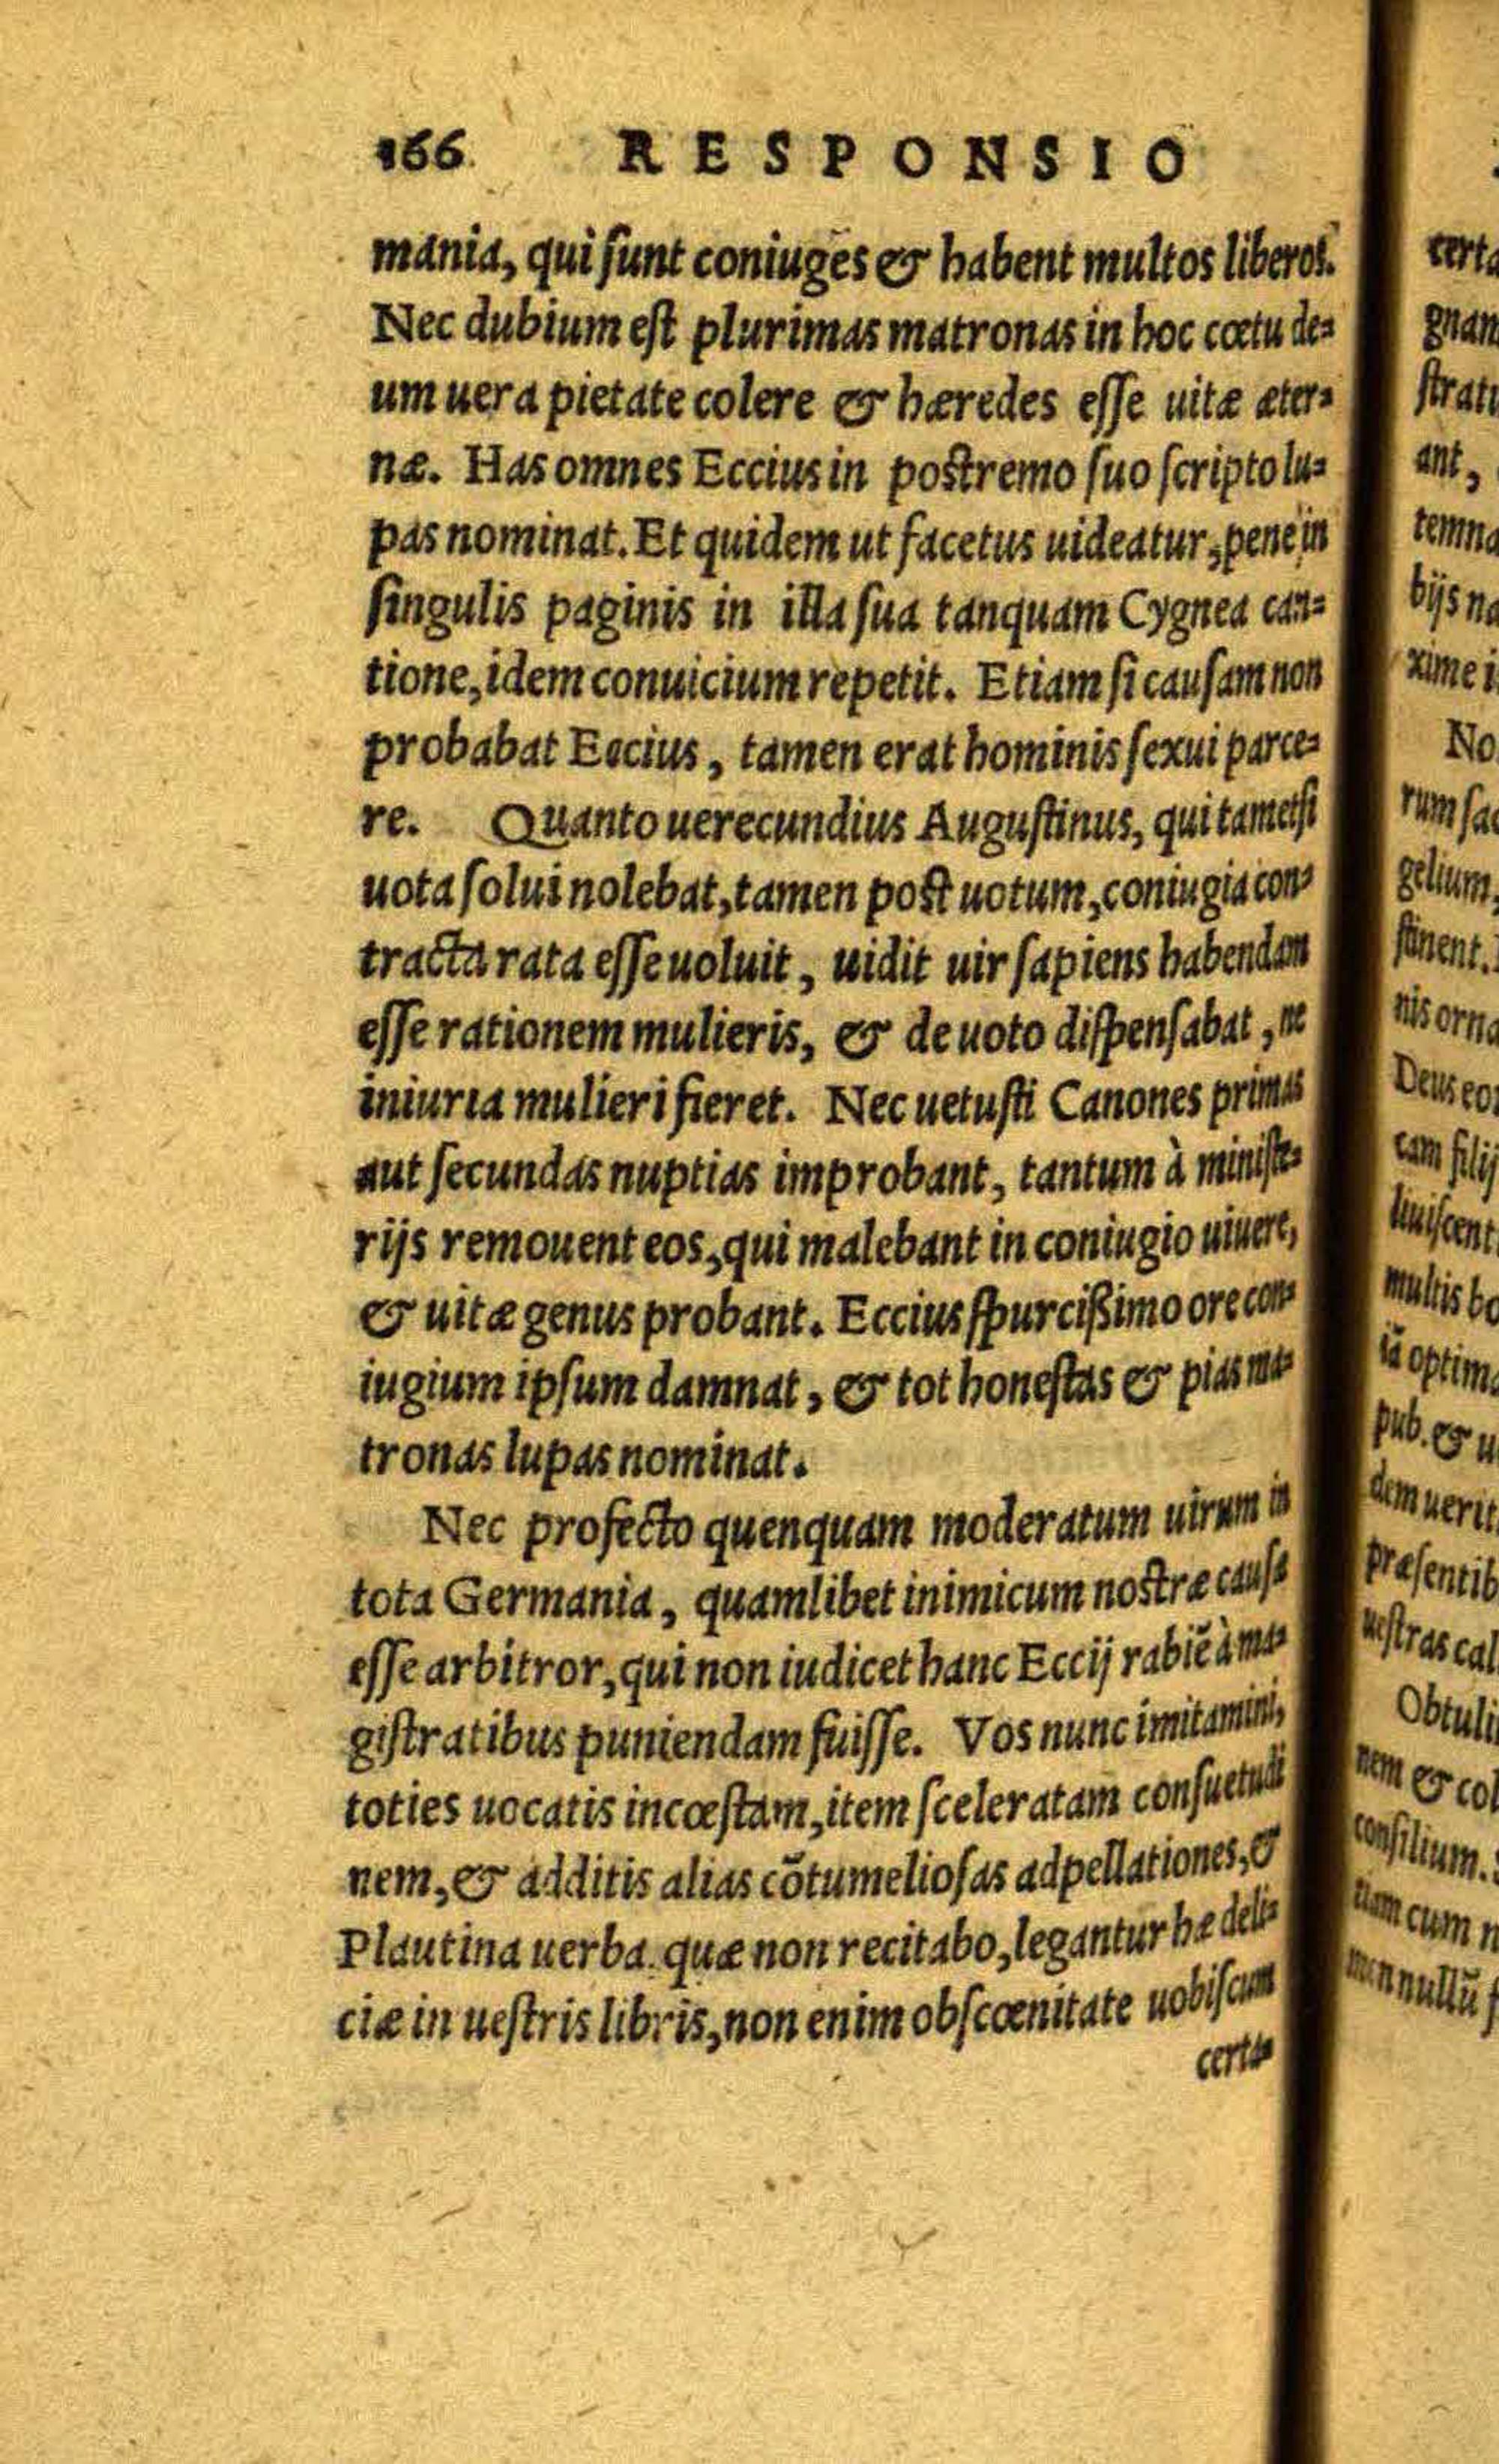 166 RESPONSIO
mania, qui ſunt coniuges & habent multos liberos.
Nec dubium eſt plurimas matronas in hoc cœtu de=
um uera pietate colere & hæredes eſſe uitæ æter=
næ. Has omnes Eccius in postremo ſuo ſcripto lu=
pas nominat. Et quidem ut facetus uideatur, pene in
ſingulis paginis in illa ſua tanquam Cygnea can=
tione, idem conuicium repetit. Etiam ſi cauſam non
probabat Eccius, tamen erat hominis ſexui parce=
re. Quanto uerecundius Auguſtinus, qui tametſi
uota ſolui nolebat, tamen post uotum, coniugia con=
tracta rata eſſe uoluit, uidit uir ſapiens habendam
eſſe rationem mulieris, & de uoto diſpenſabat, ne
iniuria mulieri fieret. Nec uetuſti Canones primas
aut ſecundas nuptias improbant, tantum à miniſte=
rijs remouent eos, qui malebant in coniugio uiuere,
& uitæ genus probant. Eccius ſpurcißimo ore con=
iugium ipſum damnat, & tot honeſtas & pias ma=
tronas lupas nominat.
Nec profecto quenquam moderatum uirum in
tota Germania, quamlibet inimicum nostræ cauſæ
eſſe arbitror, qui non iudicet hanc Eccij rabiẽ à ma=
giſtratibus puniendam fuiſſe. Vos nunc imitamini,
toties uocatis incœſtam, item ſceleratam conſuetudi
nem, & additis alias cõtumelioſas adpellationes, &
Plautina uerba. quæ non recitabo, legantur hæ deli=
ciæ in ueſtris libris, non enim obſcœnitate uobiſcum
certa=
certa
gnan
ſtrati
ant,
temna
bijs na
xime i
No
rum ſac
gelium,
ſtinent.
nis orna
Deus eo
cam filij
liuiſcent
multis bo
iã optima
pub. & u
dem uerit
præſentib
ueſtras cal
Obtuli
nem & col
conſilium.
cum n
nullũ ſ